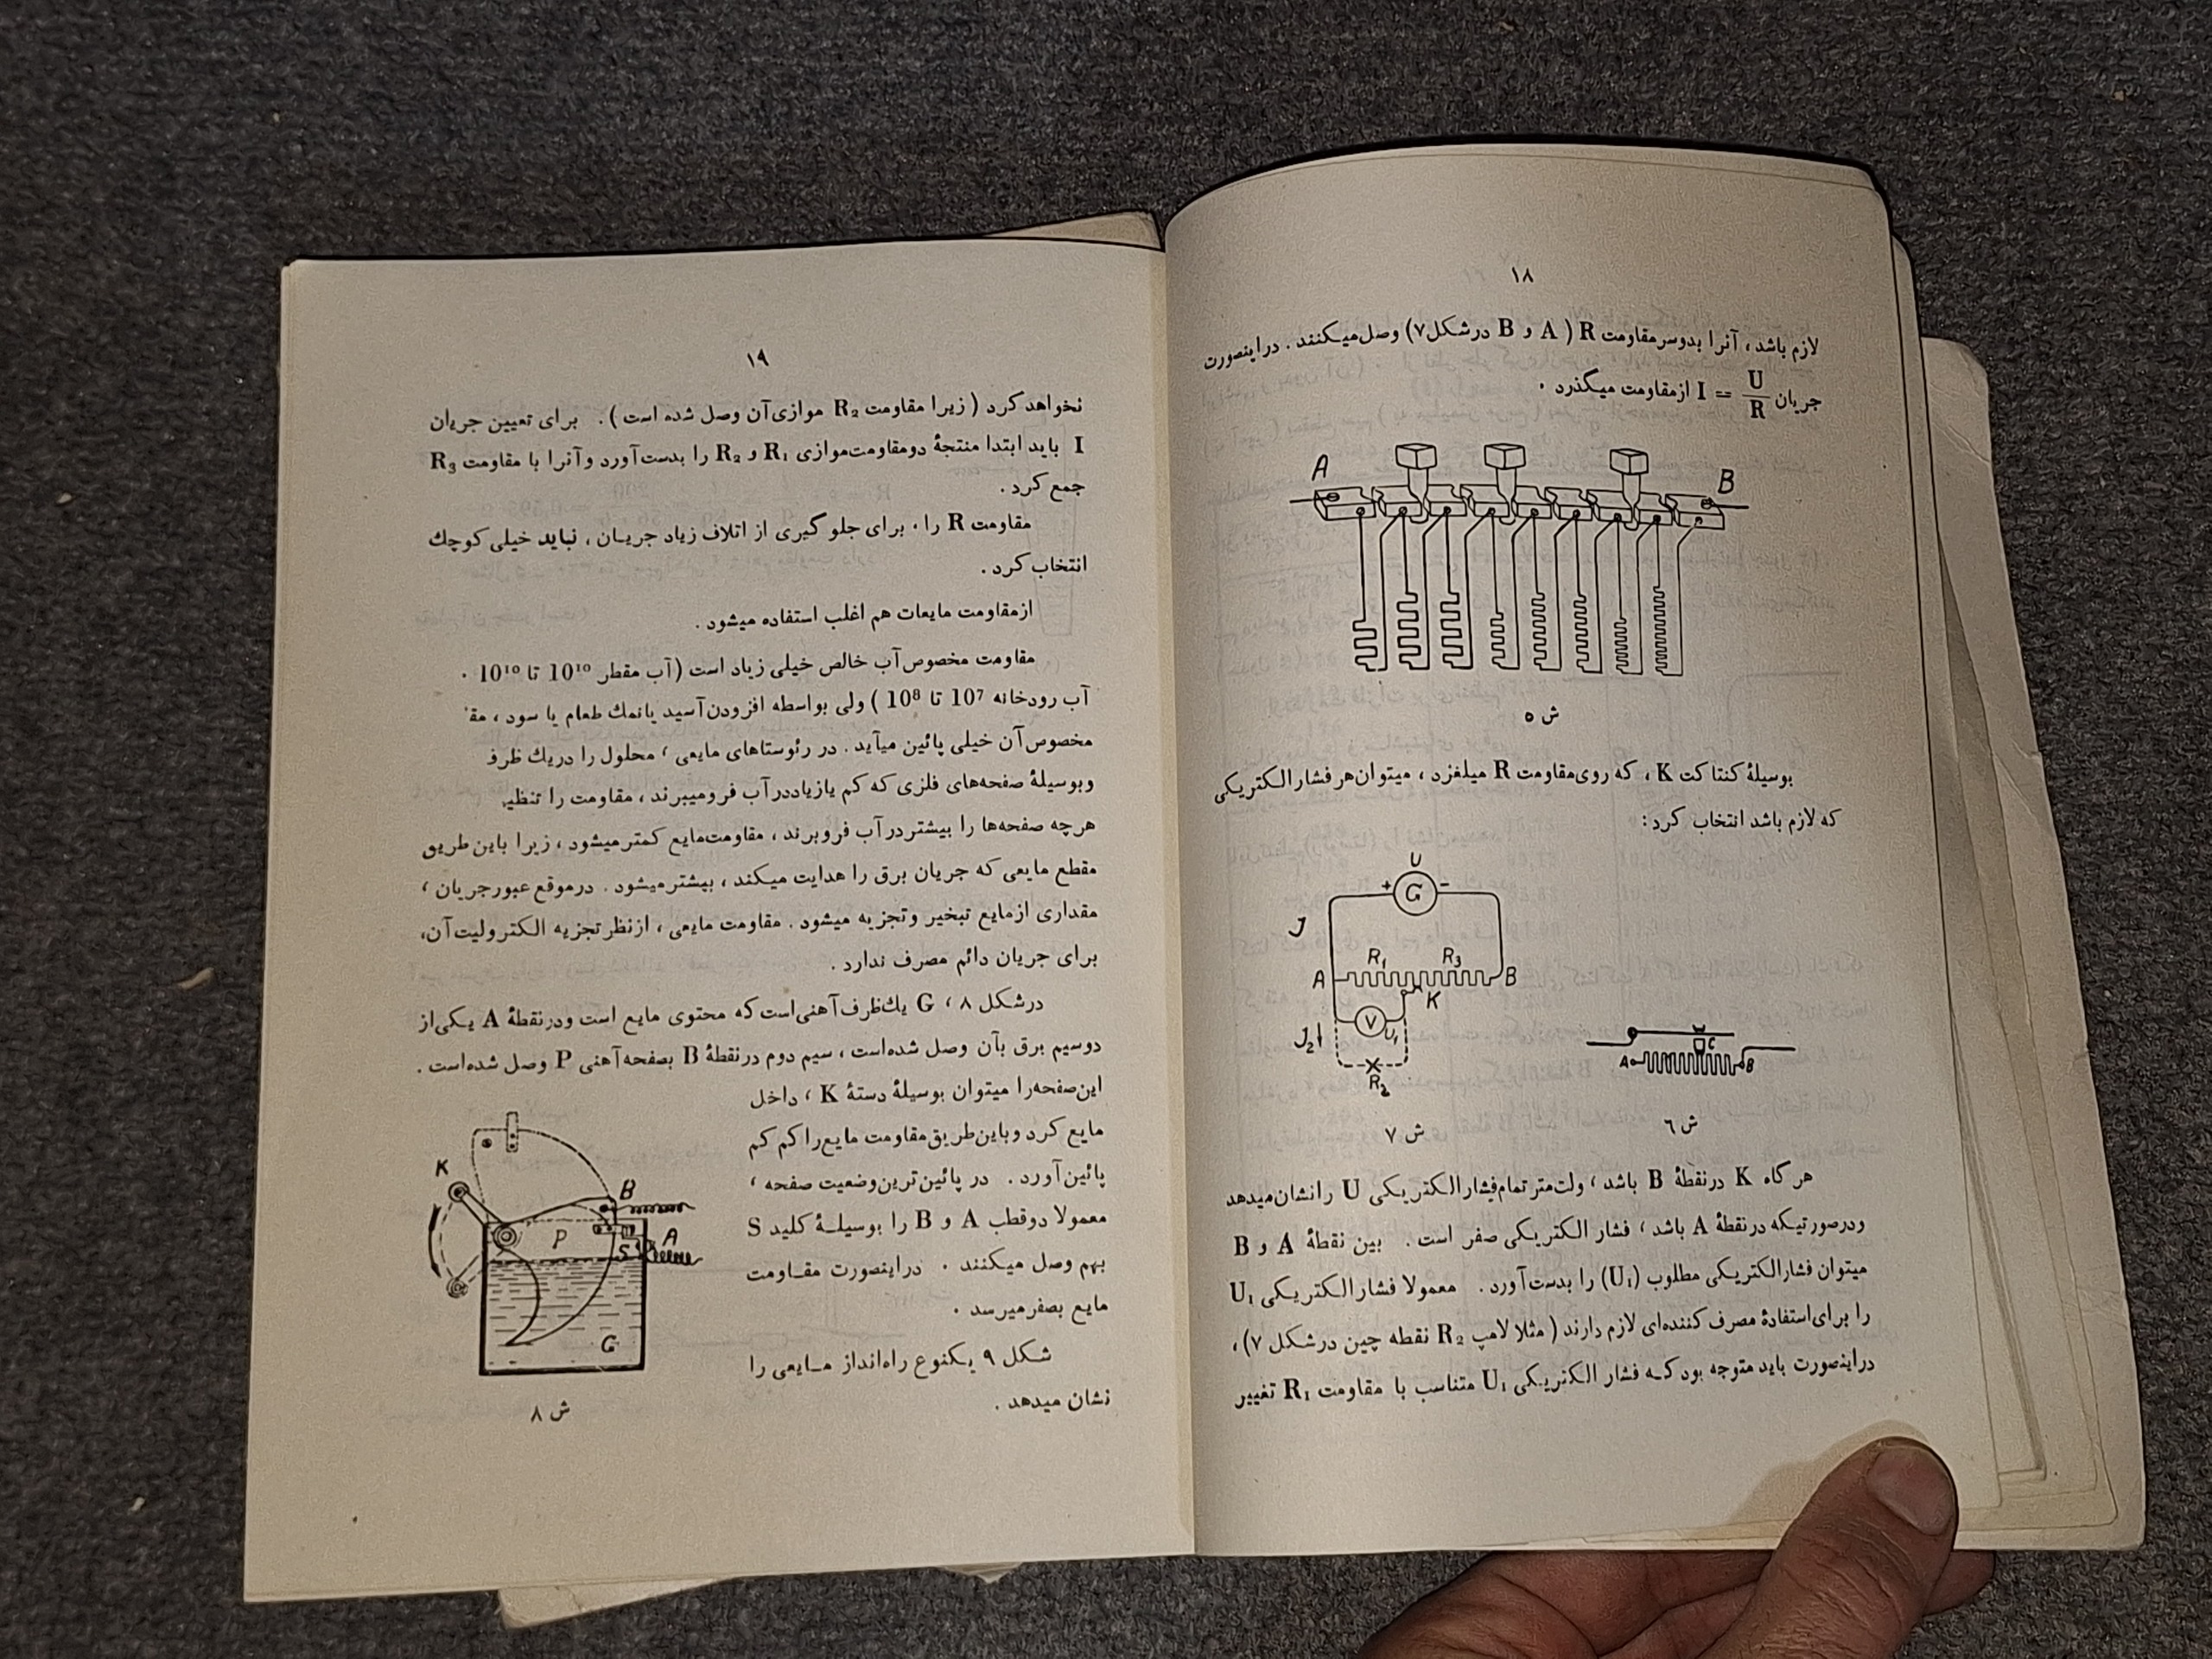 ١٨
لازم باشد، آنرا بدوسر مقاومت R ( A و B در شکل ٧) وصل میکنند . دراینصورت
جریان I = U/R ازمقاومت میگذرد .
A B
ش ٥
بوسیلهٔ کنتاکت K ، که روی مقاومت R میلغزد ، میتوان هر فشار الکتریکی
که لازم باشد انتخاب کرد :
U
+ G −
J
R₁ R₃
A B
K
V U₁
J₂
R₂
C
A B
ش ٧
ش ٦
هرگاه K درنقطهٔ B باشد ، ولت‌متر تمام فشار الکتریکی U را نشان میدهد
ودرصورتیکه درنقطهٔ A باشد ، فشار الکتریکی صفر است . بین نقطهٔ A و B
میتوان فشار الکتریکی مطلوب (U₁) را بدست آورد . معمولا فشار الکتریکی U₁
را برای استفادهٔ مصرف کننده‌ای لازم دارند ( مثلا لامپ R₂ نقطه چین درشکل ٧) ،
دراینصورت باید متوجه بود کـه فشار الکتریکی U₁ متناسب با مقاومت R₁ تغییر
١٩
نخواهد کرد ( زیرا مقاومت R₂ موازی آن وصل شده است ) . برای تعیین جریان
I باید ابتدا منتجهٔ دومقاومت موازی R₁ و R₂ را بدست آورد وآنرا با مقاومت R₃
جمع کرد .
مقاومت R را ، برای جلو گیری از اتلاف زیاد جریـان ، نباید خیلی کوچك
انتخاب کرد .
ازمقاومت مایعات هم اغلب استفاده میشود .
مقاومت مخصوص آب خالص خیلی زیاد است (آب مقطر 10¹⁰ تا 10¹⁰ .
آب رودخانه 10⁷ تا 10⁸ ) ولی بواسطه افزودن آسید یا نمك طعام یا سود ، مقـ
مخصوص آن خیلی پائین میآید . در رئوستاهای مایعی ، محلول را دریك ظرف
وبوسیلهٔ صفحه‌های فلزی که کم یازیاددرآب فرومیبرند ، مقاومت را تنظیـ
هرچه صفحه‌ها را بیشتر درآب فروبرند ، مقاومت مایع کمتر میشود ، زیرا باین طریق
مقطع مایعی که جریان برق را هدایت میکند ، بیشتر میشود . درموقع عبورجریان ،
مقداری ازمایع تبخیر وتجزیه میشود . مقاومت مایعی ، ازنظر تجزیه الکترولیت آن،
برای جریان دائم مصرف ندارد .
درشکل ٨ ، G یك ظرف آهنی است که محتوی مایع است ودرنقطهٔ A یکی از
دوسیم برق بآن وصل شده است ، سیم دوم درنقطهٔ B بصفحه آهنی P وصل شده است .
این صفحه را میتوان بوسیلهٔ دستهٔ K ، داخل
مایع کرد وباین طریق مقاومت مایع را کم کم
پائین آورد . در پائین ترین وضعیت صفحه ،
معمولا دوقطب A و B را بوسیلـهٔ کلید S
بهم وصل میکنند . دراینصورت مقـاومت
مایع بصفر میرسد .
شکل ٩ یکنوع راه‌انداز مـایعی را
نشان میدهد .
K
B
P
A
S
G
ش ٨